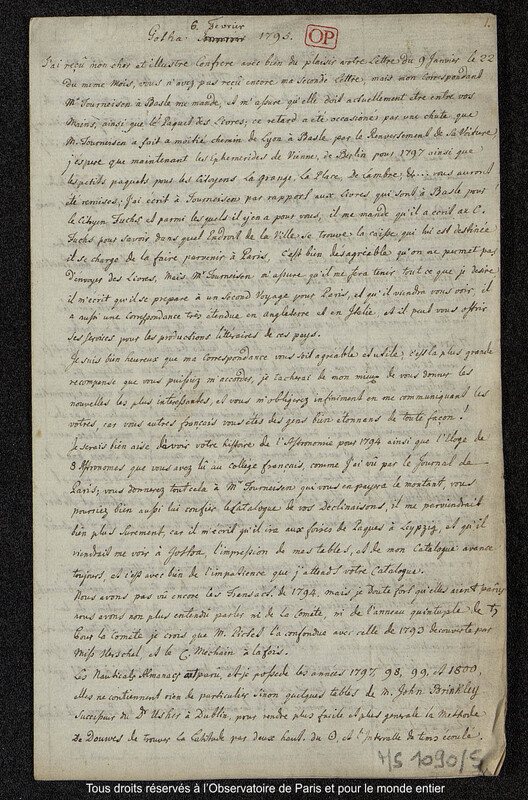 Gotha 6. Fevrier 1795.
OP
1.
J'ai reçu mon cher et illustre Confrere avec bien du plaisir votre Lettre du 9 Janvier le 22
du meme Mois, vous n'avez pas reçu encore ma seconde Lettre, mais mon Correspondant
Mr Tourneisen à Basle me mande, et m'assure qu'elle doit actuellement etre entre vos
Mains, ainsi que le Paquet des Livres; ce retard a eté occasioné par une chute que
Mr Tourneisen a fait a moitié chemin de Lyon à Basle par le Renversement de sa Voiture
j'espere que maintenant les Ephemerides de Vienne, de Berlin pour 1797 ainsi que
les petits paquets pour les Citoyens La Grange, La Place, De Lambre, &... vous auront
été remises; J'ai écrit à Tourneisen par rapport aux Livres qui sont à Basle pour
le Citoyen Fuchs, et parmi lesquels il y en a pour vous, il me mande qu'il a écrit au C.
Fuchs pour savoir dans quel Endroit de la Ville se trouve la caisse qui lui est destinée
il se charge de la faire parvenir à Paris, c'est bien désagréable qu'on ne permet pas
d'envoyer des Livres, Mais Mr Tourneisen m'assure qu'il me fera tenir tout ce que je desire
il m'ecrit qu'il se prepare à un Second Voyage pour Paris, et qu'il viendra vous voir, il
a aussi une Correspondance très étendue en angleterre et en Italie, et il peut vous offrir
ses services pour les productions littéraires de ces pays.
Je suis bien heureux que ma Correspondance vous soit agréable et utile; c'est la plus grande
recompense que vous puissiez m'accorder, je tacherai de mon mieux de vous donner les
nouvelles les plus interessantes, et vous m'obligerez infiniment en me communiquant les
vôtres, car vous autres français vous êtes des gens bien étonnans de toute façon!
Je serais bien aise d'avoir votre histoire de l'Astronomie pour 1794 ainsi que l'Eloge de
3 Astronomes que vous avez lû au college francais, comme j'ai vû par le Journal de
Paris; vous donnerez tout cela à Mr Tourneisen qui vous en payera le montant, vous
pourriez bien aussi lui confier le Catalogue de vos Declinaisons, il me parviendrait
bien plus surement, car il m'écrit qu'il ira aux foires de Paques à Leypzig, et qu'il
viendrait me voir à Gotha, l'impression de mes tables, et de mon Catalogue avance
toujours, et c'est avec bien de l'impatience que j'attends vôtre Catalogue.
Nous avons pas vû encore les Transact. de 1794. mais je doute fort qu'elles aient parûes
nous avons non plus entendû parler ni de la Comete, ni de l'anneau quintuple de ♄
Pour la comete je crois que M. Pictet l'a confondue avec celle de 1793 decouverte par
Miss Herschel, et le C. Mechain à la fois.
Les Nautical-Almanacs ont parû, et je possede les années 1797, 98, 99, et 1800,
elles ne contiennent rien de particulier sinon quelques tables de M. John Brinkley
Successeur du Dr Usher à Dublin, pour rendre plus facile et plus generale la Methode
De Douwes de trouver la Latitude par deux haut. du ☉, et l'intervalle de tems écoulé.
MS 1090/5
Tous droits réservés à l'Observatoire de Paris et pour le monde entier